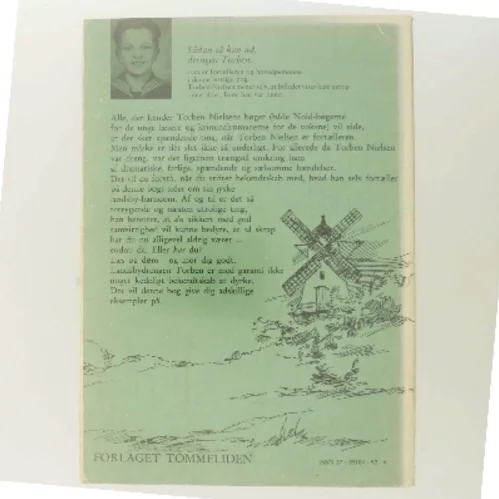 Sådan så han ud,
drengen Torben,
som er fortælleren og hovedpersonen
i denne herlige bog.
Torben Nielsen mener selv, at billedet
Alle, der kender Torben Nielsens bøger (både Nold-bøgerne
for de unge læsere og kriminalromanerne for de voksne) vil vide,
at der sker spændende ting, når Torben Nielsen er fortælleren.
Men måske er det slet ikke så underligt. For allerede da Torben Nielsen
var dreng, var der ligesom trængsel omkring ham
af dramatiske, farlige, spændende og sælsomme hændelser.
Det vil du forstå, når du stifter bekendtskab med, hvad han selv fortæller
på denne bogs sider om sin jyske
landsby-barndom. Af og til er det så
forrygende og næsten utrolige ting,
han beretter, at du sikkert med god
samvittighed vil kunne hævde, at så skrap
har du nu alligevel aldrig været –
endnu da. Eller har du?
Læs og døm – og mor dig godt.
Landsbydrengen Torben er med garanti ikke
noget kedeligt bekendtskab at dyrke.
Det vil denne bog give dig adskillige
eksempler på.
FORLAGET TOMMELIDEN
ISBN 87